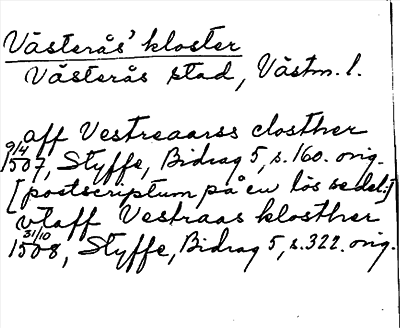 Västerås' kloster
Västerås stad, Västm. l.
aff Vestreaarss closther
9/4 1507, Styffe, Bidrag 5, s. 160. orig.
[postscriptum på en lös sedel:]
vtaff Vestraas klosther
31/10 1508, Styffe, Bidrag 5, s. 322. orig.